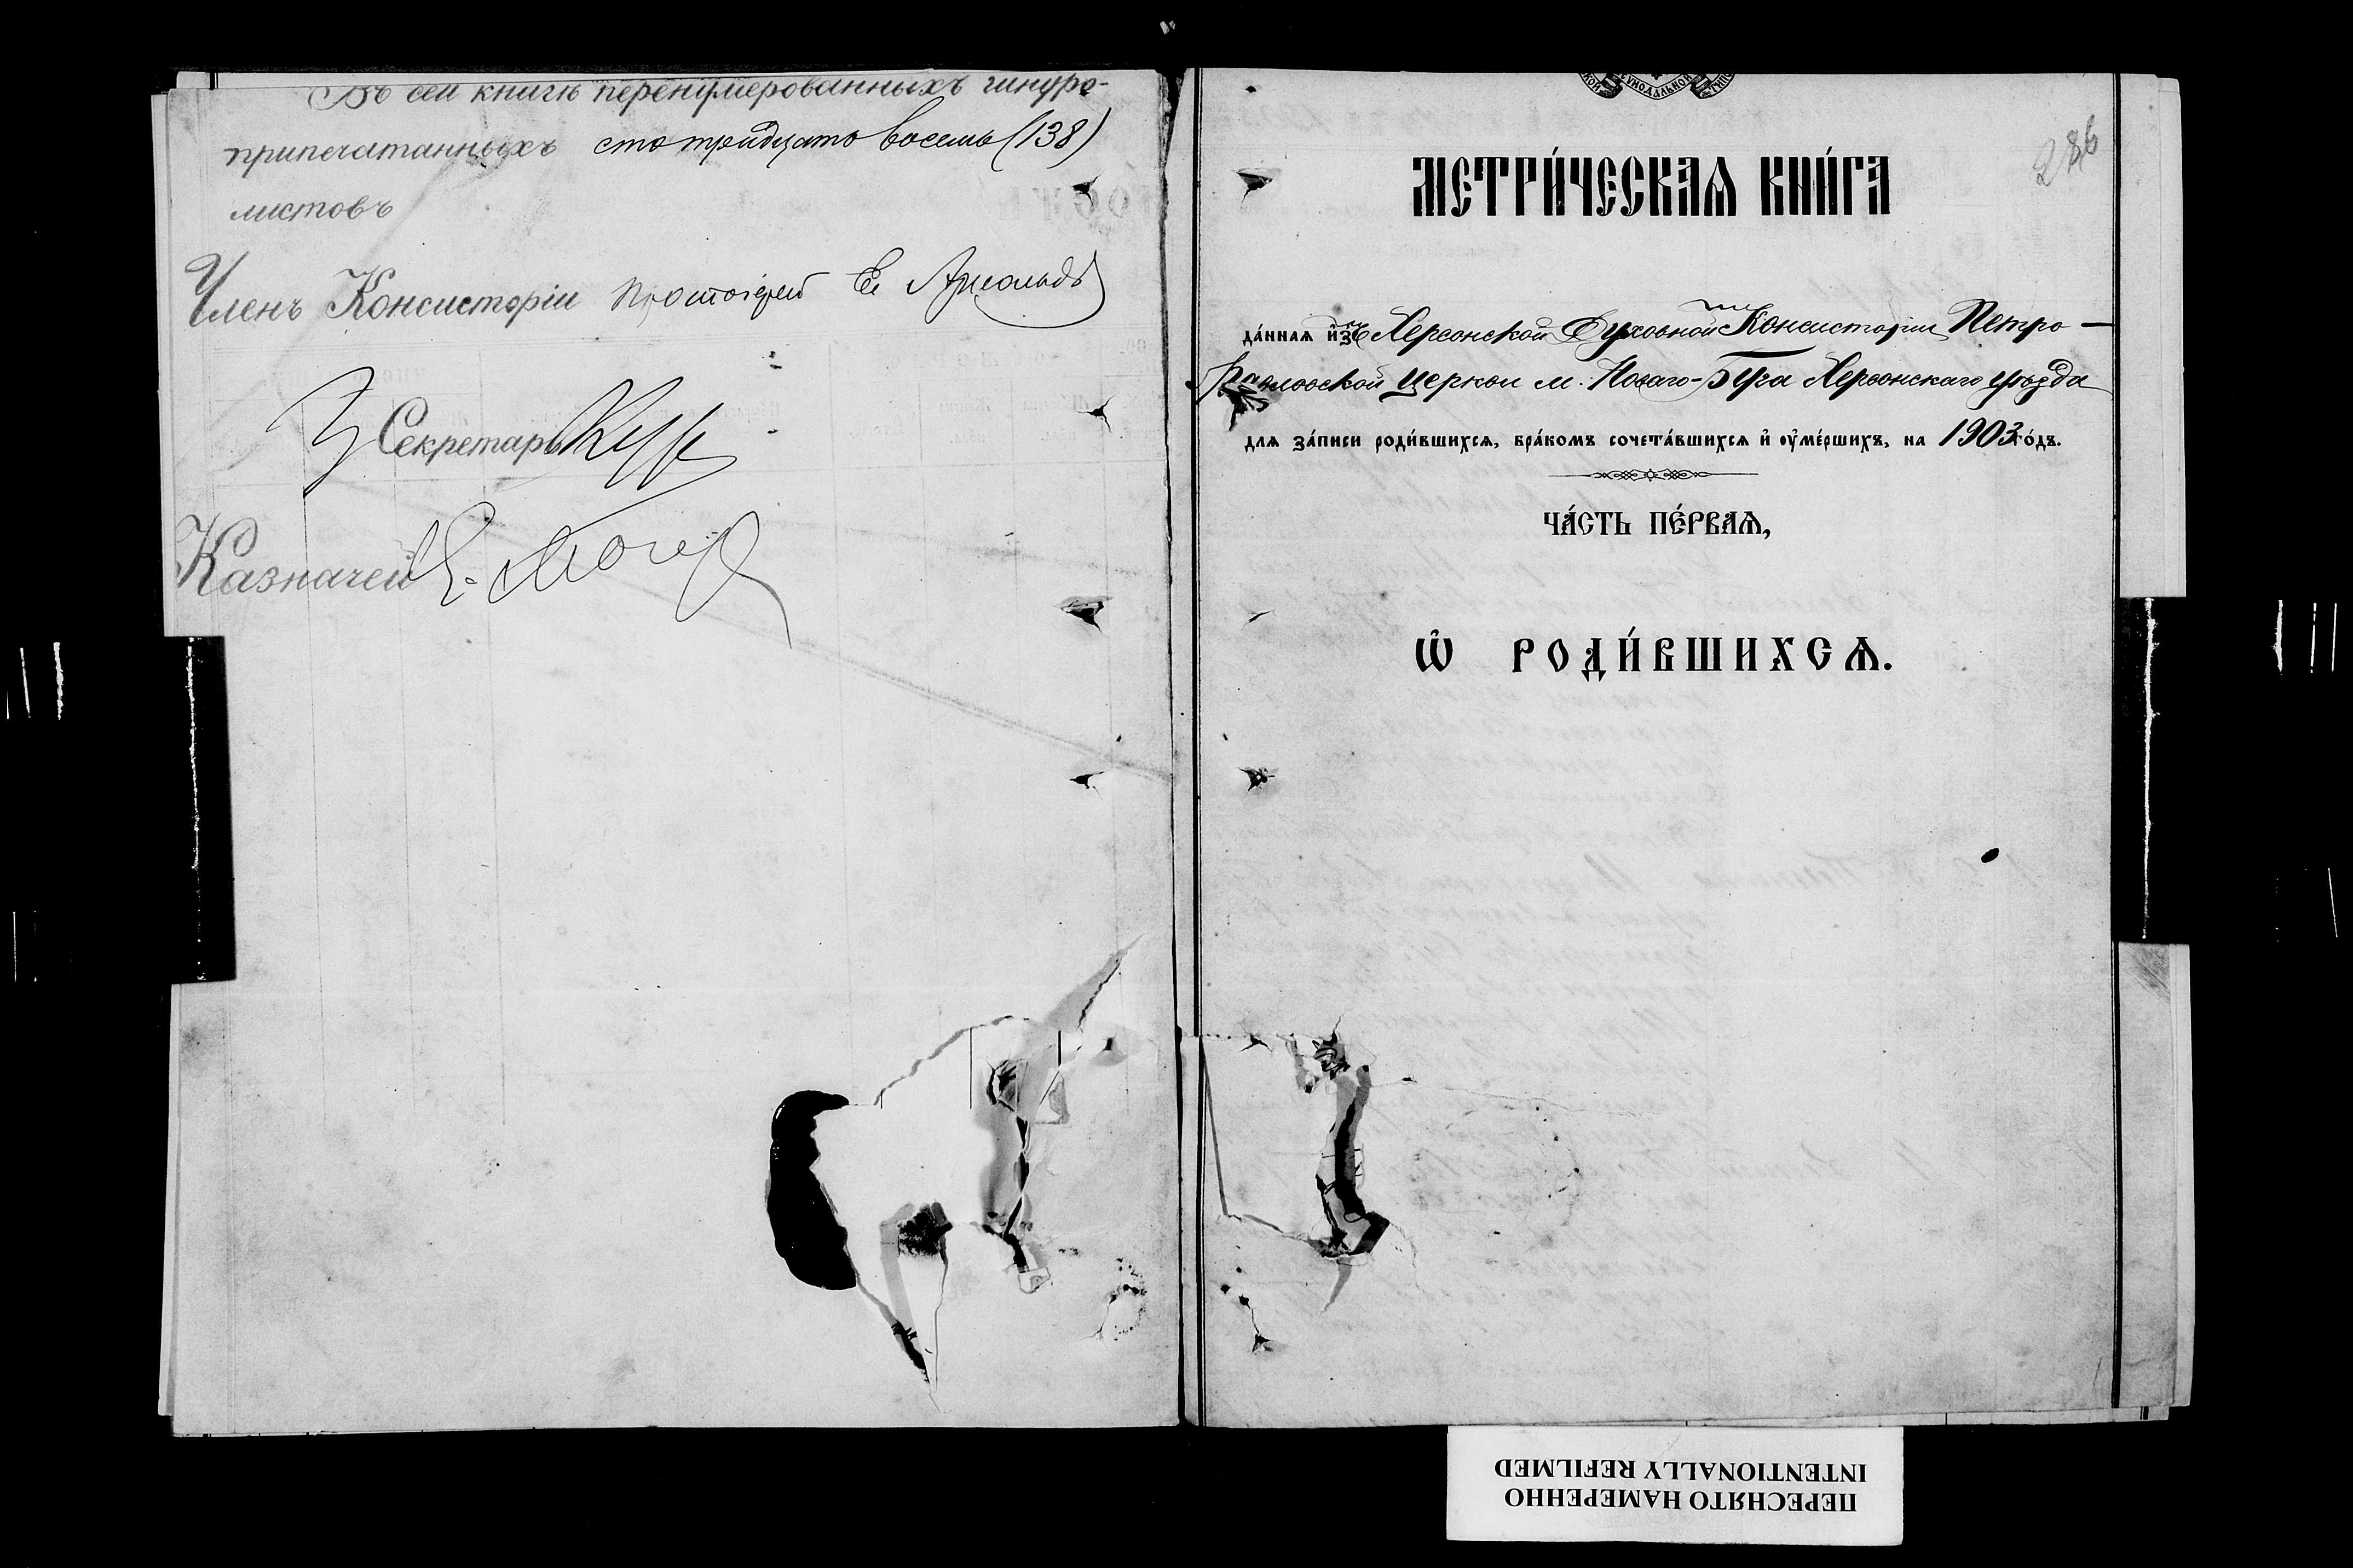 Въ сей книгѣ перенумерованныхъ шнуро-
припечатанныхъ сто тридцать восемь (138)
листовъ
Членъ Консисторіи Протоіерей Е. Арнольдъ
Секретарь
Казначей
286
МЕТРИ́ЧЕСКАѦ КНИ́ГА
да́ннаѧ изъ Херсонской Духовной Консисторіи Петро-
Павловской церкви м. Новаго-Буга Херсонскаго уѣзда
для за́писи роди́вшихсѧ, бра́комъ сочета́вшихсѧ и҆ ᲂу҆ме́ршихъ, на 1903 го́дъ.
ЧА́СТЬ ПЕ́РВАѦ,
Ѡ҆ РОДИ́ВШИХСѦ.
ПЕРЕСНЯТО НАМЕРЕННО
INTENTIONALLY REFILMED